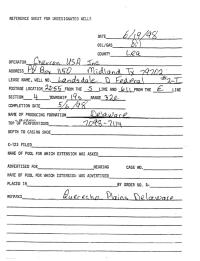 REFERENCE SHEET FOR UNDESIGNATED WELLS
DATE 6/19/98
OIL/GAS Oil
COUNTY Lea
OPERATOR Chevron USA Inc
ADDRESS PO Box 1150 Midland Tx 79702
LEASE NAME, WELL NO. Lansdale D Federal #2-I
FOOTAGE LOCATION 2055 FROM THE S LINE AND 611 FROM THE E LINE
SECTION 4 TOWNSHIP 19s RANGE 32e
COMPLETION DATE 5/6/98
NAME OF PRODUCING FORMATION Delaware
TOP OF PERFORATIONS 7098-7114
DEPTH TO CASING SHOE
C-123 FILED
NAME OF POOL FOR WHICH EXTENSION WAS ASKED
ADVERTISED FOR HEARING CASE NO.
NAME OF POOL FOR WHICH EXTENSION WAS ADVERTISED
PLACED IN BY ORDER NO. R-
REMARKS Querecho Plains Delaware